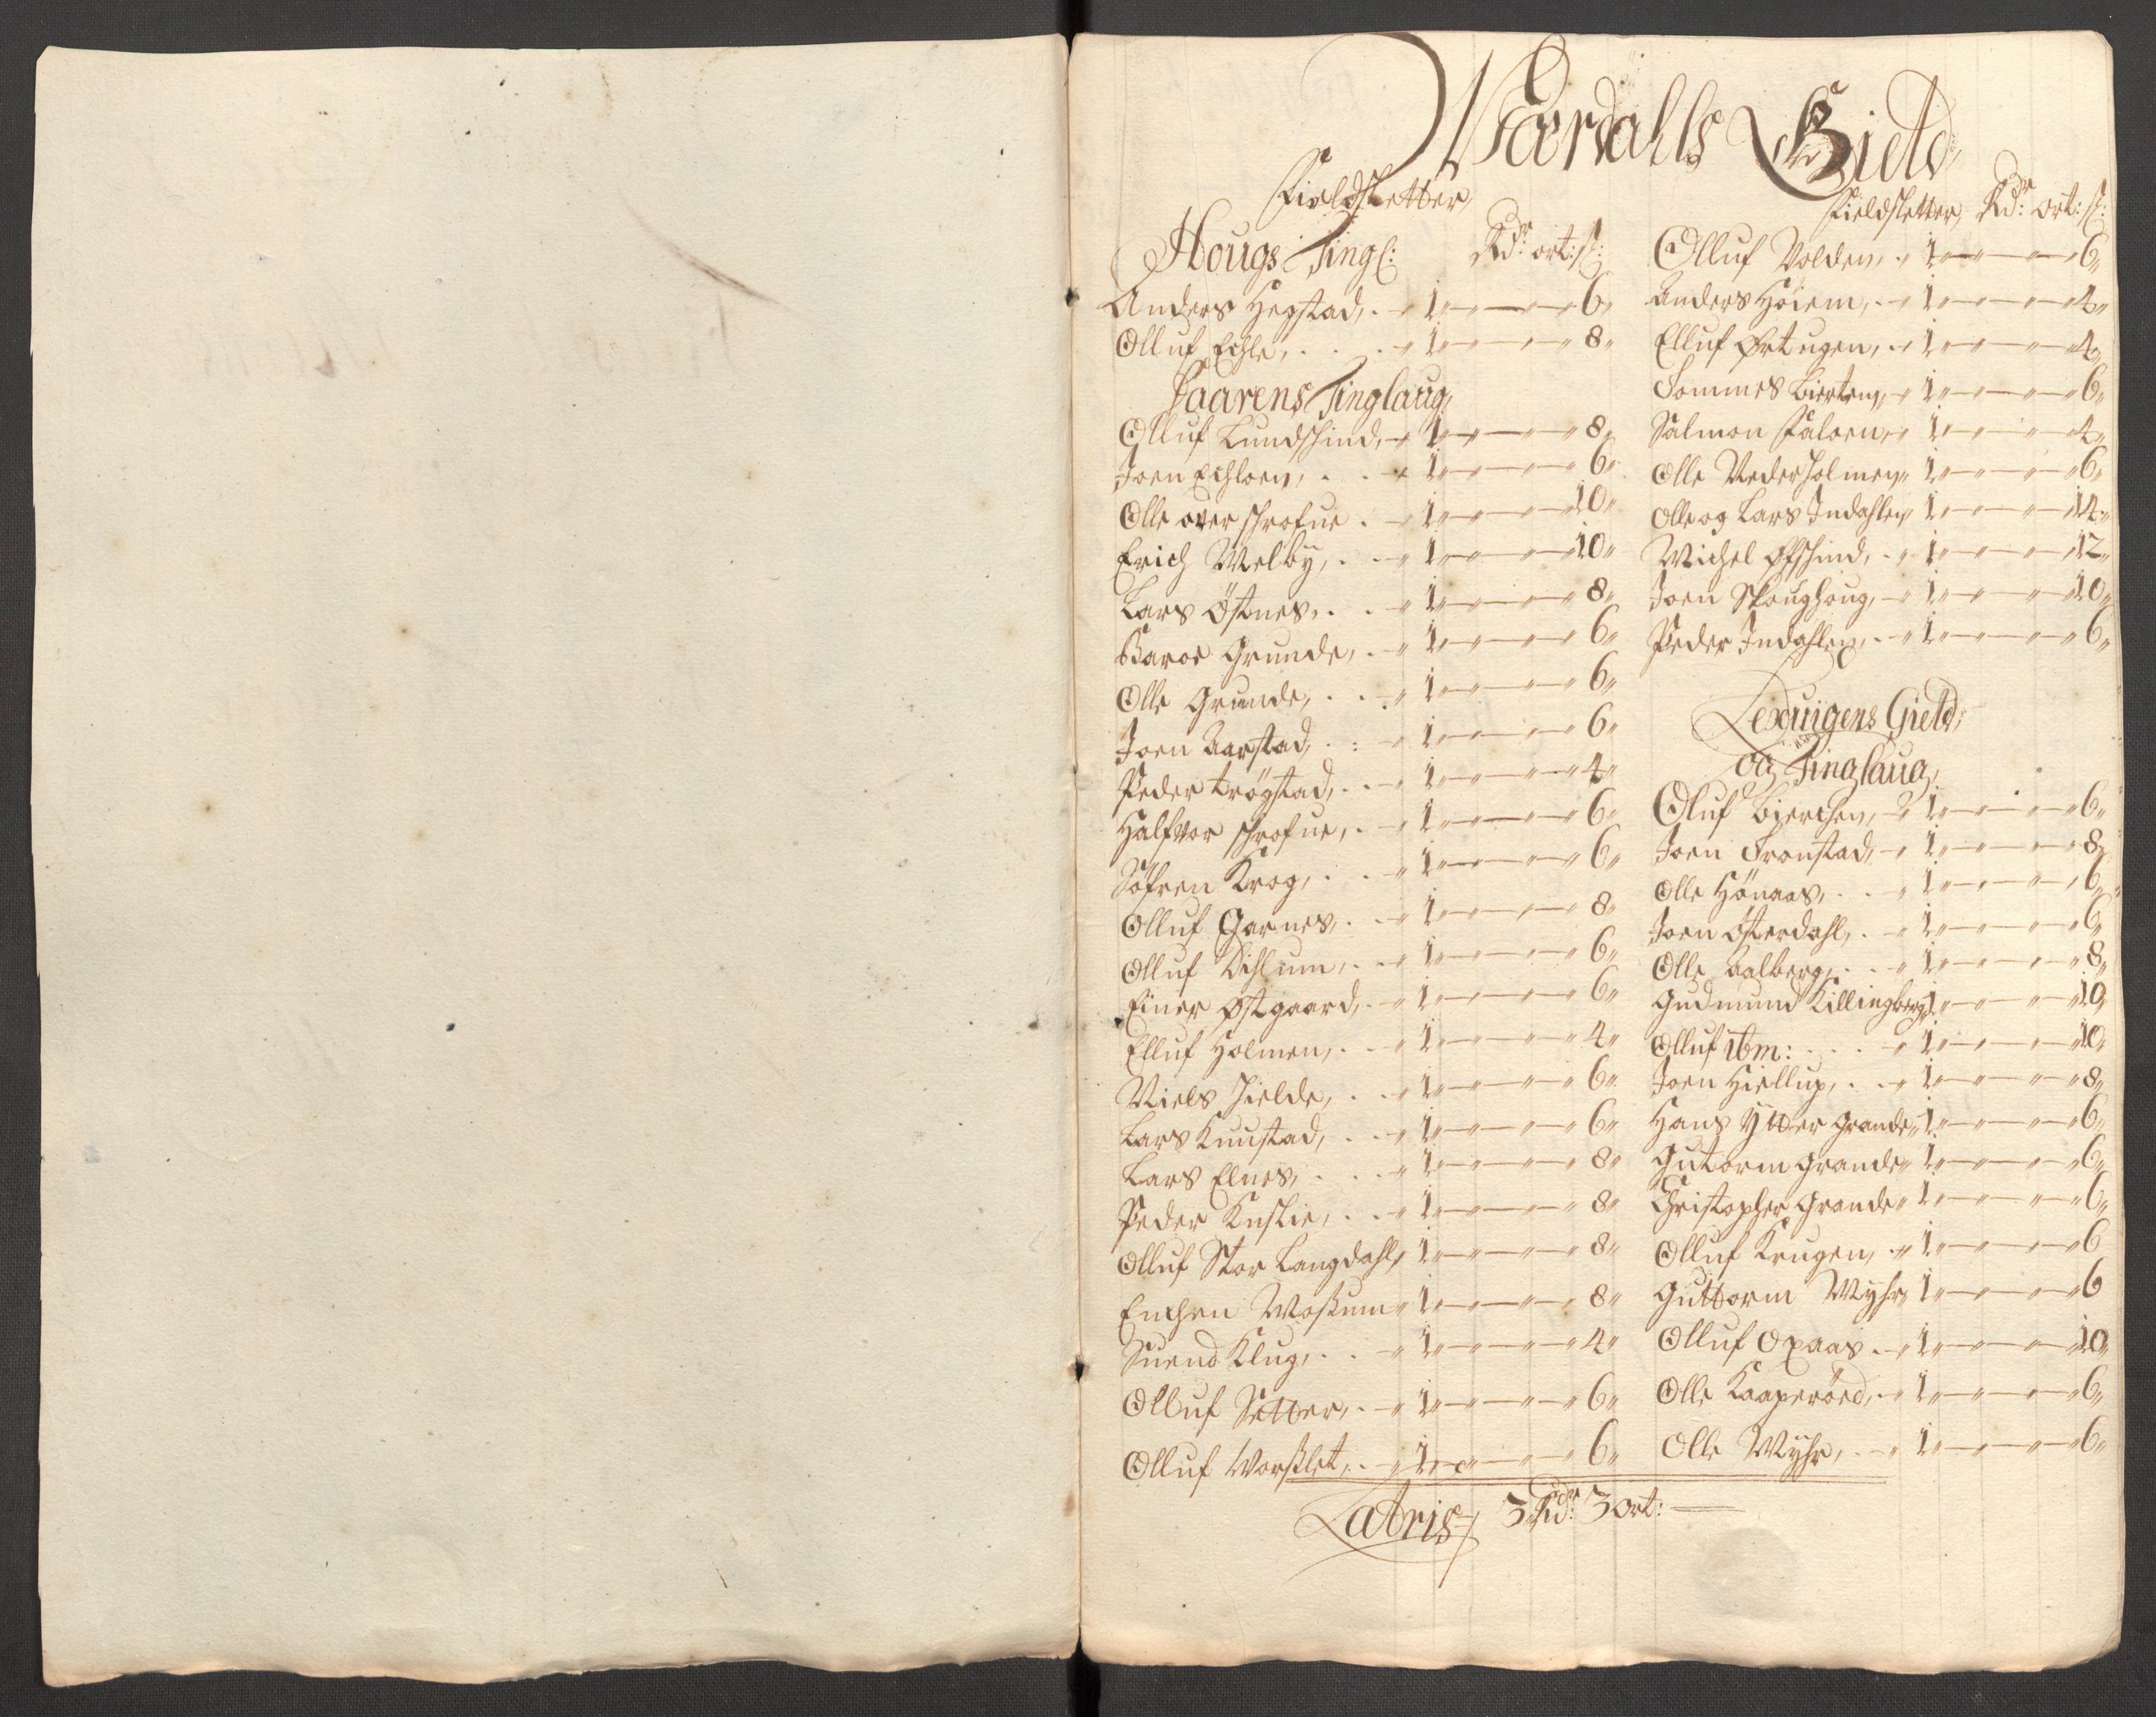 Wærdalls Gield
Fieldsletter,
Hougs Tingl: Rdr: ort: s:
Anders Hegstad, 1 6
Olluf Echle, 1 8
Faarens Tinglaug,
Olluf Lundschind, 1 8
Joen Echloen, 1 6
Olle over schrofue 1 10
Erich Melby, 1 10
Lars Östnes, 1 8
Baroe Grunde, 1 6
Olle Grunde, 1 6
Joen Aarstad, 1 6
Peder trögstad, 1 4
Halfvor schrofue, 1 6
Söfren Krog, 1 6
Olluf Garnes, 1 8
Olluf Dihlum, 1 6
Einer Østgaard, 1 6
Elluf Holmen, 1 4
Niels Hielde, 1 6
Lars Knustad, 1 6
Lars Elnes, 1 8
Peder Knslie, 1 8
Olluf Stor Langdahl, 1 8
Enchen Woßum 1 8
Suend Klug, 1 4
Olluf Sætter, 1 6
Olluf Worßlet, 1 6
Fieldsletter, Rdr: ort: s:
Olluf Volden, 1 6
Anders Höiem, 1 4
Elluf Ørtugen, 1 4
Tommes Bierken, 1 6
Salmon Faloen, 1 4
Olle Nederholmen 1 6
Olle og Lars Indahlen 1 14
Michel Øfschind, 1 12
Joen Skoughoug, 1 10
Peder Indahlen, 1 6
Lexuigens Gield,
og Tinglaug,
Oluf Bierchen, 1 6
Joen Tronstad, 1 8
Olle Hönaas, 1 6
Joen Österdahl, 1 6
Olle Aalberg, 1 8
Gudmund Killingberg 1 10
Olluf ibm: 1 10
Joen Hiellup, 1 8
Hans Ytter Grande, 1 6
Gutorm Grande 1 6
Christopher Grande 1 6
Olluf Krugen, 1 6
Guttorm Myhr, 1 6
Olluf Oxaas 1 10
Olle Kaaperöed, 1 6
Olle Myhr, 1 6
Latris 3 Rdr: 3 ort: